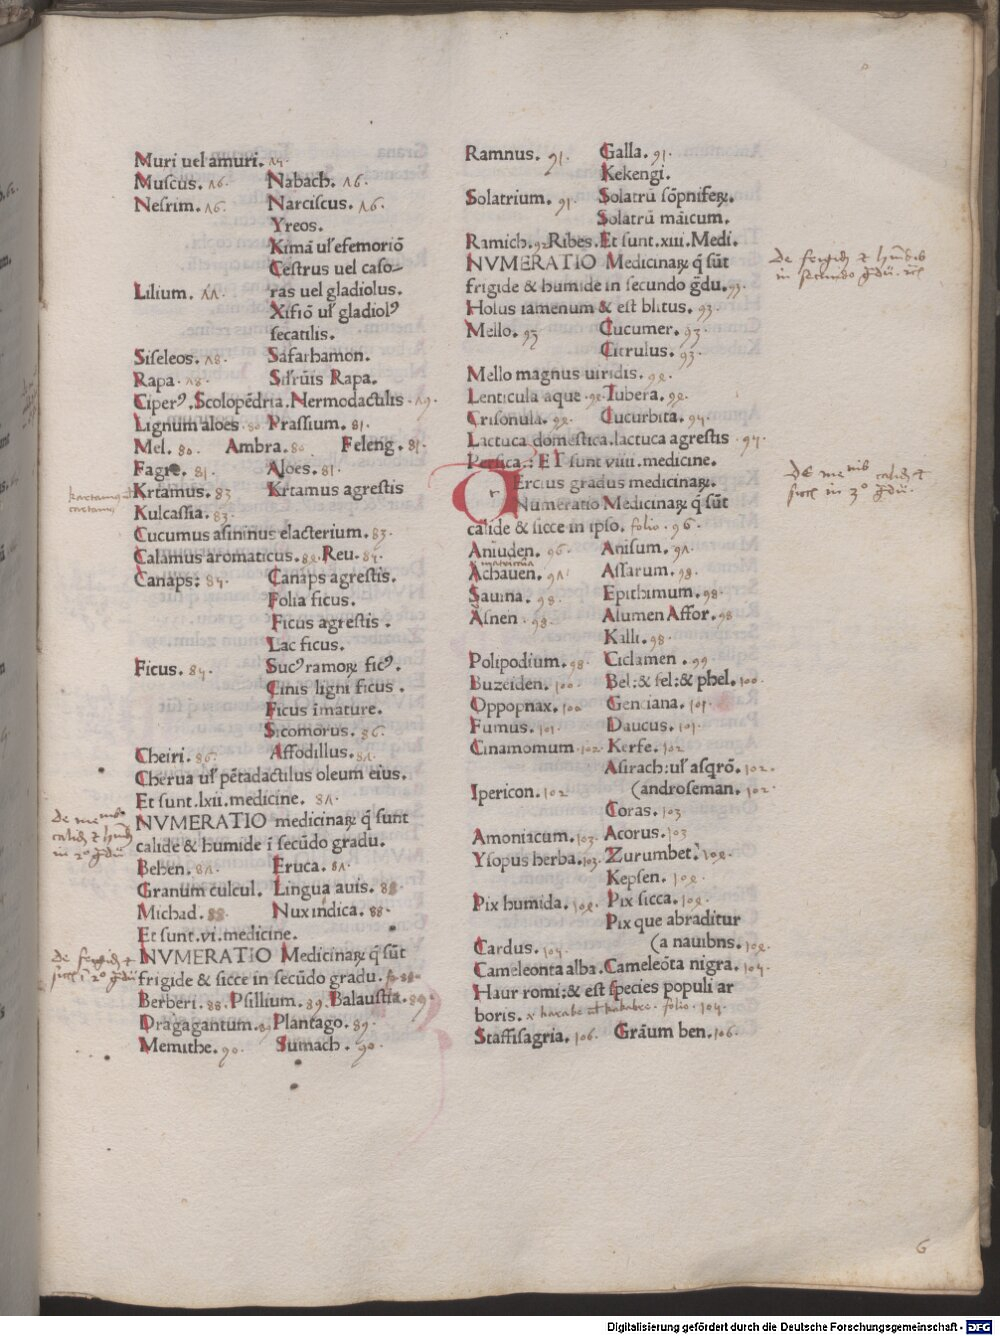 Muri uel amuri. 75.
Muscus. 76. Nabach. 76.
Nesrim. 76. Narciscus. 76.
Yreos.
Kimā ul' efemoriō
Cestrus uel caso-
Lilium. 77. ras uel gladiolus.
Xifiō ul' gladiolꝰ
secatilis.
Siseleos. 78. Safarhamon.
Rapa. 78. Silr̄uis Rapa.
Ciperꝰ. Scolopēdria. Nermodactilis. 79.
Lignum aloes. 80 Prassium. 81.
Mel. 80. Ambra. 80 Feleng. 81.
Fagre. 81. Aloes. 81.
Krtamus. 83 Krtamus agrestis
Kulcassia. 83.
Cucumus asininus elacterium. 83.
Calamus aromaticus. 84. Reu. 84.
Canaps: 84. Canaps agrestis.
Folia ficus.
Ficus agrestis.
Lac ficus.
Ficus. 85. Sucꝰ ramoꝝ ficꝰ.
Cinis ligni ficus.
Ficus īmature.
Sicomorus. 86.
Cheiri. 86. Affodillus. 87.
Cherua ul' pētadactilus oleum eius.
Et sunt. lxii. medicine. 87.
de
calidis et
in 2o gradu
NVMERATIO medicinaꝝ q̄ sunt
calide & humide ī secūdo gradu.
Behen. 87. Eruca. 87.
Granum culcul. Lingua auis. 88.
Michad. 88. Nux indica. 88.
Et sunt. vi. medicine.
de frigidis et
siccis 2o gradu
NVMERATIO Medicinaꝝ q̄ sūt
frigide & sicce in secūdo gradu. fo 88
Berberi. 88. Psillium. 89. Balaustia. 89.
Dragagantum. 89 Plantago. 89.
Memithe. 90. Sumach. 90.
Ramnus. 91. Galla. 91.
Kekengi.
Solatrium. 91. Solatrū sōpniferꝝ.
Solatrū māicum.
Ramich. 92 Ribes. Et sunt. xiii. Medi.
NVMERATIO Medicinaꝝ q̄ sūt
frigide & humide in secundo ḡdu. 93.
de frigidis et
in secundo gradu
Holus iamenum & est blitus. 93.
Mello. 93 Cucumer. 93.
Citrulus. 93.
Mello magnus uiridis. 94.
Lenticula aque. 94. Tubera. 94.
Crisonula. 94. Cucurbita. 95.
Lactuca domestica. lactuca agrestis. 95.
Persica.: ET sunt viiii. medicine.
TErcius gradus medicinaꝝ.
Numeratio Medicinaꝝ q̄ sūt
calide & sicce in ipso. folio. 96.
calidis et
siccis in 3o gradu.
Aniuden. 96. Anisum. 97.
Achauen. 97. Assarum. 98.
Sauina. 98. Epithimum. 98.
Asnen. 98. Alumen Affor. 98
Kalli. 98.
Polipodium. 98. Ciclamen. 99.
Buzeiden. 100. Bel: & fel: & phel. 100.
Oppopnax. 100 Genciana. 101.
Fumus. 101. Daucus. 101.
Cinamomum. 102. Kerfe. 102
Asirach: ul' asqrō. 102.
Ipericon. 102 (androseman. 102.
Coras. 103.
Amoniacum. 103. Acorus. 103
Ysopus herba. 103. Zurumbet. 104.
Kepsen. 104.
Pix humida. 104. Pix sicca. 104.
Pix que abraditur
Cardus. 105. (a nauibns. 104.
Cameleonta alba. Cameleōta nigra. 105.
Haur romi: & est species populi ar
boris. folio. 105.
Staffisagria. 106. Grāum ben. 106.
6
Digitalisierung gefördert durch die Deutsche Forschungsgemeinschaft - DFG